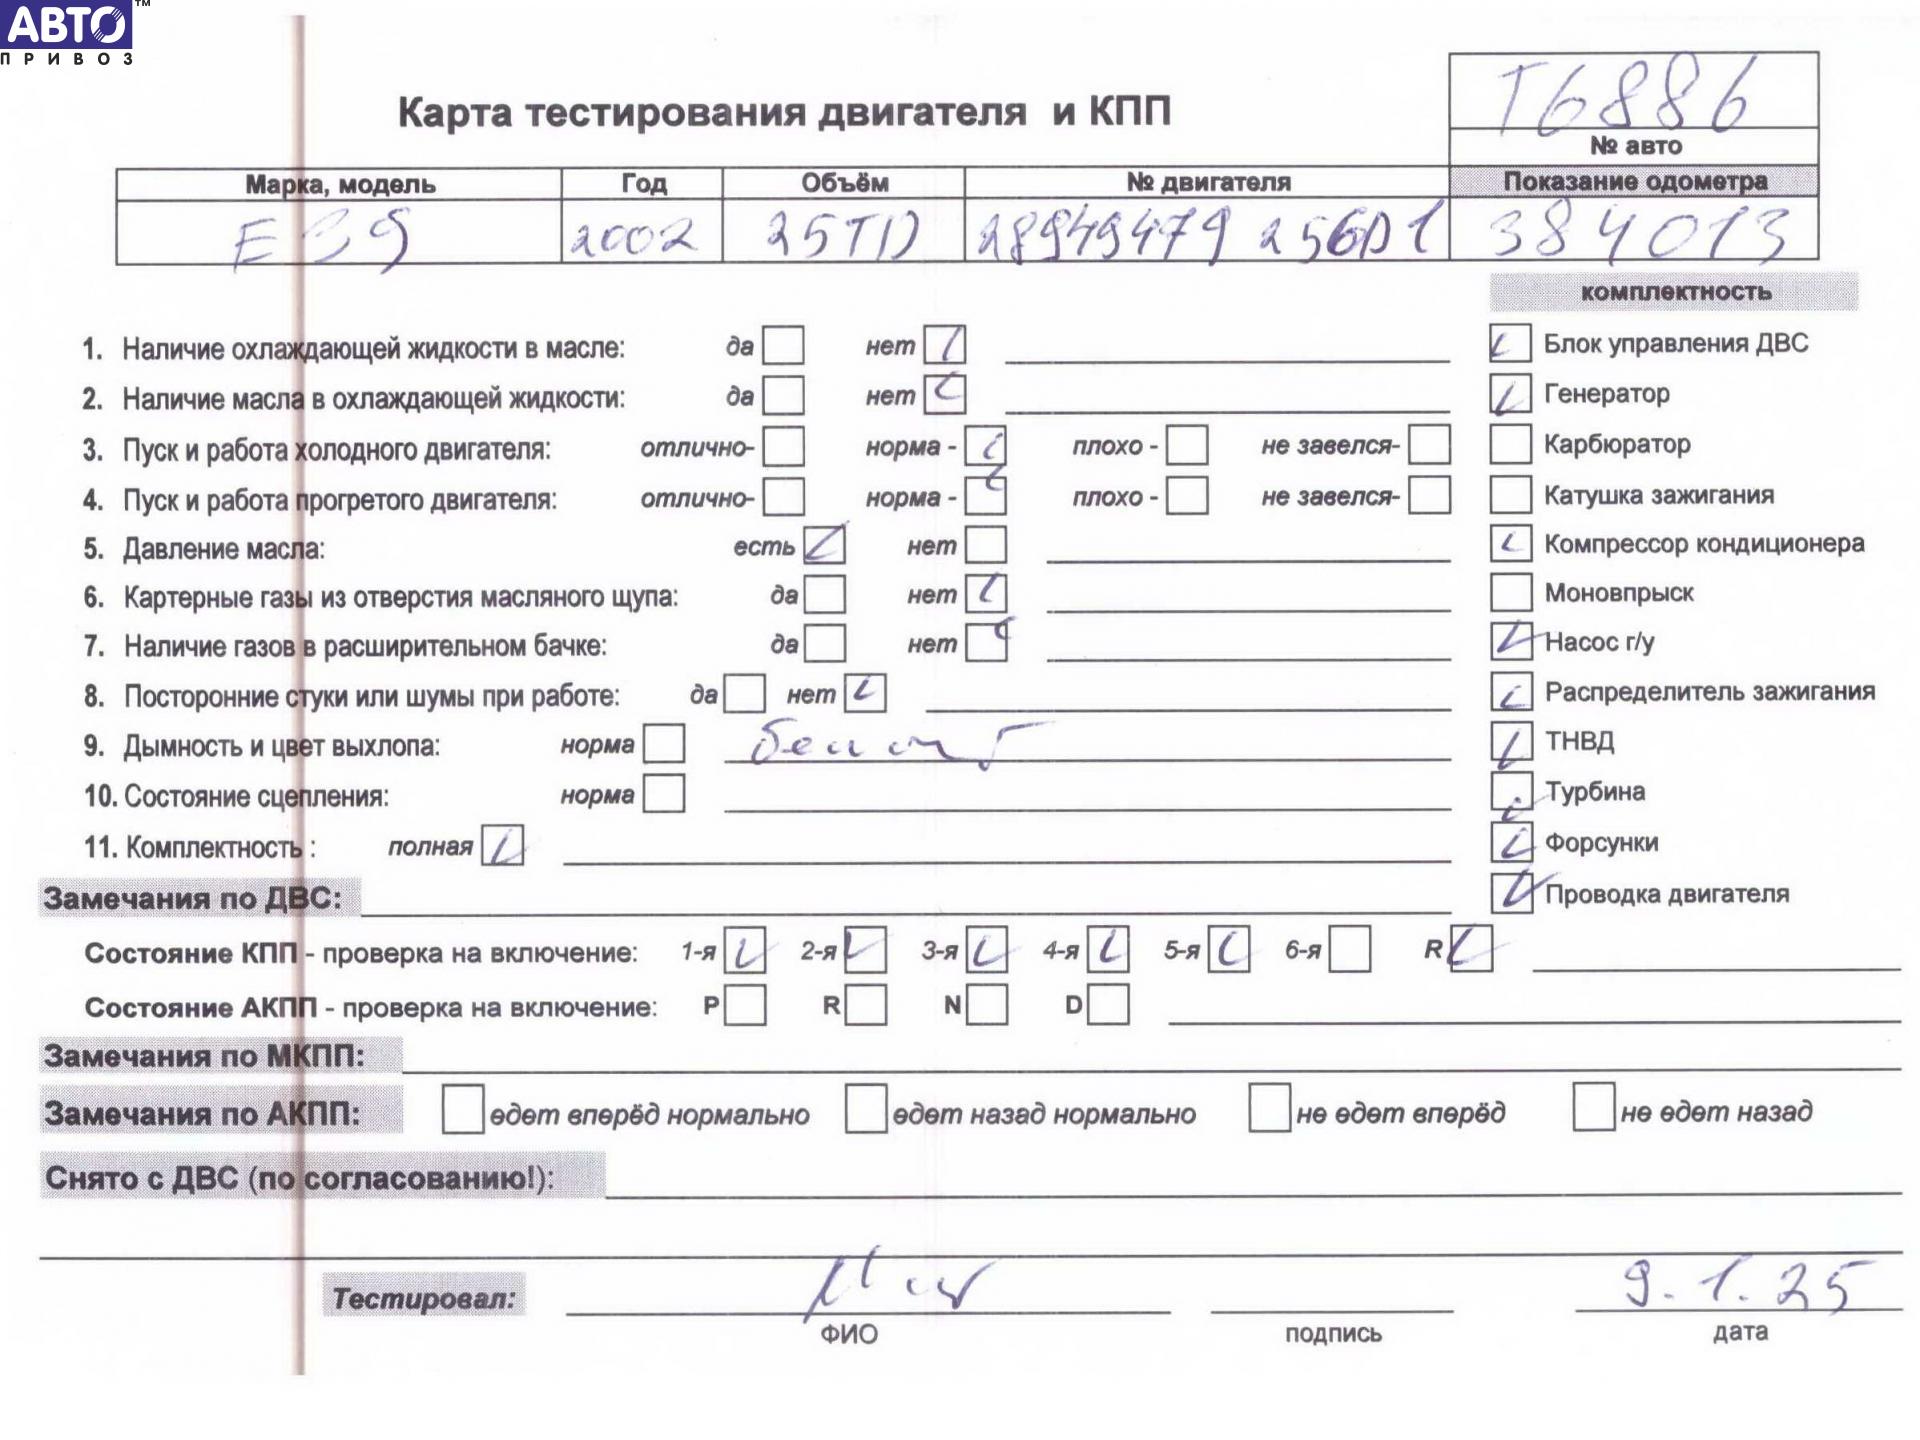 АВТО™
ПРИВОЗ
Т6886
Карта тестирования двигателя и КПП
№ авто
Марка, модель Год Объём № двигателя Показание одометра
E39 2002 25TD 28949479 256D1 384013
комплектность
1. Наличие охлаждающей жидкости в масле: да нет Блок управления ДВС
2. Наличие масла в охлаждающей жидкости: да нет Генератор
3. Пуск и работа холодного двигателя: отлично- норма - плохо - не завелся- Карбюратор
4. Пуск и работа прогретого двигателя: отлично- норма - плохо - не завелся- Катушка зажигания
5. Давление масла: есть нет Компрессор кондиционера
6. Картерные газы из отверстия масляного щупа: да нет Моновпрыск
7. Наличие газов в расширительном бачке: да нет Насос г/у
8. Посторонние стуки или шумы при работе: да нет Распределитель зажигания
9. Дымность и цвет выхлопа: норма ТНВД
10. Состояние сцепления: норма Турбина
11. Комплектность : полная Форсунки
Замечания по ДВС: Проводка двигателя
Состояние КПП - проверка на включение: 1-я 2-я 3-я 4-я 5-я 6-я R
Состояние АКПП - проверка на включение: P R N D
Замечания по МКПП:
Замечания по АКПП: едет вперёд нормально едет назад нормально не едет вперёд не едет назад
Снято с ДВС (по согласованию!):
Тестировал: 9.1.25
ФИО подпись дата